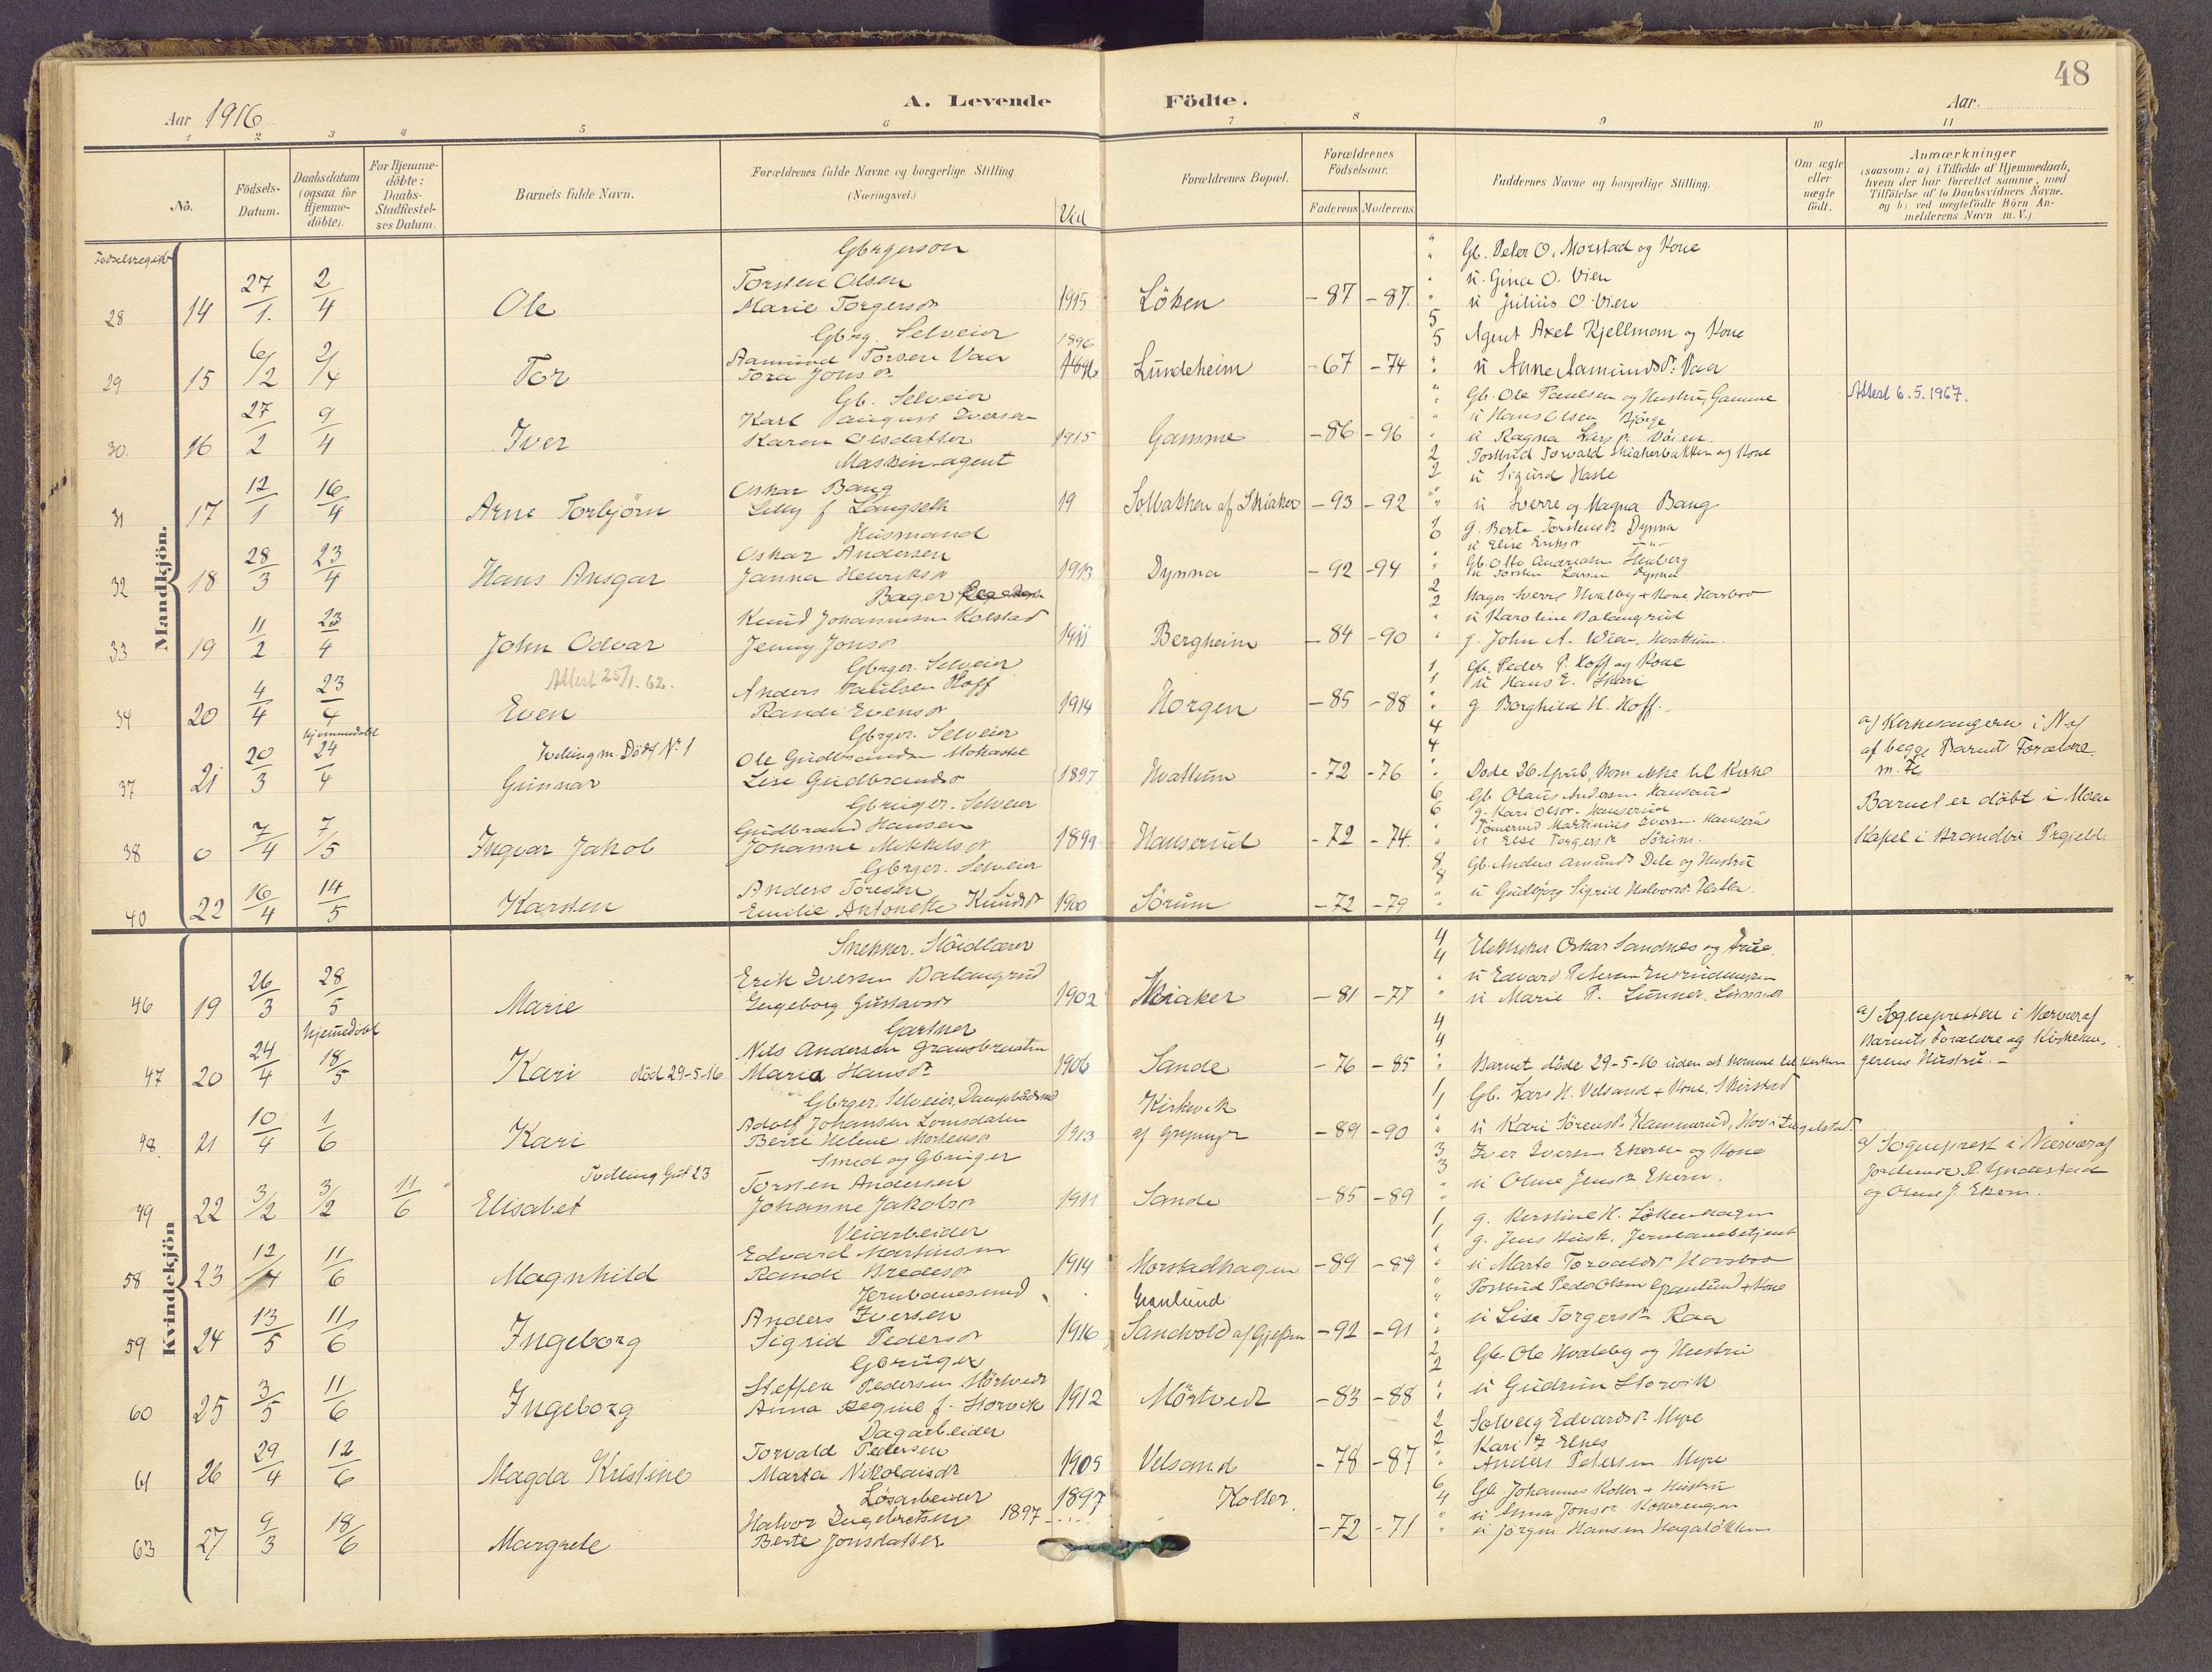 48
Aar 1916
A. Levende Födte.
Aar.
1 2 3 4 5 6 7 8 9 10 11
No.
Födsels-Datum.
Daabsdatum (ogsaa for Hjemme-döbte).
For Hjemme-döbte: Daabs-Stadfæstel-ses Datum.
Barnets fulde Navn.
Forældrenes fulde Navne og borgerlige Stilling
(Næringsvei.)
Viet
Forældrenes Bopæl.
Forældrenes Födselsaar.
Faderens Moderens
Faddernes Navne og borgerlige Stilling.
Om ægte eller uægte født.
Anmærkninger
(saasom: a) i Tilfælde af Hjemmedaab,
hvem der har forrettet samme, med
Tilföielse af to Daabsvidners Navne.
og b) ved uægtefödte Börn An-
melderens Navn m. V.)
Mandkjön.
Gbrgerson
28 14 27/1. 2/4 Ole
Torsten Olsen
Marie Torgersdr 1915 Löken -87 -87.
Gb. Peter O. Morstad og Kone
u. Gina O. Vien
u Julius O. Vien
Gbrg. Selveier
29 15 6/2 2/4 Tor
Aamund Torsen Vaa 1896
Tora Jonsdr Lundeheim -67 -74
5 5 Agent Axel Kjellmann og Kone
u Anne Aamundsdr. Vaa
Gb. Selveier
30. 16 27/2 9/4 Iver
Karl August Iversen
Karen Olsdatter 1915 Gamme -86 -96
Gb. Ole Paulsen og Hustru, Gamme
u Hans Olsen Björge
u Ragna Larsdr.
Attest 6.5.1967.
Maskin-agent
31 17 12/1 16/4 Arne Torbjörn
Oskar Bang
Lilly f Langseth 19 Solbakken af Skiaker -93 -92
2 2 Postbud Torvald Skiakerbakken og Kone
u Sigurd Hasle
u Sverre og Magna Bang
Husmand
32 18 28/3 23/4 Hans Ansgar
Oskar Andersen
Janna Henriksdr 1913 Dynna -92 -94
g. Berte Torstensdr Dynna
u Elise Eriksdr
Gb. Otto Andreasen
u Torsten Larsen Dynna
Bager
33 19 11/2 23/4 John Odvar
Knud Johannesen Kolstad
Jenny Jonsdr 1911 Bergheim -84 -90
2 2 Bager Sverre Hvalby + Kone, Hassbro
u Karoline Dalangrud
g. John A. Wien, Hvattum.
Attest 25/1. 62.
Gbrger. Selveier
34 20 4/4 23/4 Even
Anders Paulsen Hoff
Randi Evensdr 1914 Horgen -85 -88
1, 1 Gb. Peder P. Hoff og Kone
u Hans E.
g Borghild H. Hoff.
Gbrger. Selveier
hjemmedøbt
Tvilling m. Dödf No. 1
37 21 20/3 24/4 Gunnar
Ole Gudbrandsen
Lise Gudbrandsdr 1897 Hvattum -72 -76
4 4 Döde 26 April, kom ikke til Kirke
a) Kirkesangeren i N af
af begge Barnets Forældre
Gbruger. Selveier
38 0 7/4 7/5 Ingvar Jakob
Gudbrand Hansen
Johanne Mikkelsdr 1899 Hanserud -72 -74.
6 6 Gb Olaus Andersen Hanserud
g. Kari Olsdr. Hanserud
Tömmermd Martinius Iversen Hanserud
u Else Torgersdr Sörum.
Barnet er döbt i Moen
Kapel i Brandbu Prgjeld
Gbrger. Selveier
40 22 16/4 14/5 Karsten
Anders Toresen
Emilie Antonette Knudsdr 1900 Sörum -72 -79
8, 8 Gb. Anders Amunds. Dele og Hustru
u Gudbjörg Sigrid Halvorsdr.
Kvindekjön
Snekker. Slöidlærer
46 19 26/3 28/5 Marie
Erik Iversen Dalangrud
Engeborg Gustavsdr 1902 Skiaker -81 -77
4 4 Oskar Sandnes og Frue.
u Edvard Petersen
u Marie P. Lunner, Lunner
Gartner
hjemmedöbt
47 20 24/4 18/5 Kari död 29-5-16
Nils Andersen Gransbraaten
Maria Hansdr 1906 Sande -76 -85
4 4 Barnet döde 29-5-16 uden at komme til Kirken
a) Sognepresten i Nærvær af
Barnets Forældre og Kirkesan-
gerens Hustru.
Gbrger. Selveier,
48. 21 10/4 1/6 Kari
Adolf Johansen Lomsdalen
Berte Helene Mortensdr 1913 Kirkevik af Grymyr -89 -90
1, 1 Gb. Lars H. Velsand + Kone, Skirstad
u Kari Sörensdr. Hammerud, Hov i
Smed og Gbruger
Tvilling
49 22 3/2 3/2 11/6 Elisabet
Torsten Andersen
Johanne Jakobsdr 1911 Sande -85 -89
3 3 Iver Iversen Ekern og Kone
u Oline Jensdr Ekern.
a) Sogneprest i Nærvær af
Jordmor P. Yndestad
og Oline J. Ekern.
Veiarbeider
58 23 12/4 11/6 Magnhild
Edvard Martinsen
Randi Bredesdr 1914 Morstadhagen -89 -89
1, 1 g. Kerstine H. Lökenhagen
g. Jens Jernbanebetjent
u Marte Torvaldsdr Hovsbro
Jernbanesmed
59 24 13/5 11/6 Ingeborg
Anders Iversen
Sigrid Pedersdr 1916 Granlund Sandvold af -92 -91
Postbud Peder Olsen Granlund + Kone
u Lise Torgersdr Raa
Gbruger
60 25 3/5 11/6 Ingeborg
Steffen Pedersen Mörtvedt
Anna Regine f. Storvik 1912 Mörtvedt -83 -88
2 2 Gb. Ole Hvaleby og Hustru
u Gudrun Storvik
Dagarbeider
61 26 29/4 12/6 Magda Kristine
Torvald Pedersen
Marta Nikolaisdr 1909 Velsand -78 -87
2 2 Solveig Edvardsdr. Myre
Kari J Elnes
Anders Petersen Myre
Lösarbeider
63 27 9/3 18/6 Margrete
Halvor Ingebretsen 1897 1897
Berte Jonsdatter Koller. -72 -71
6 4 Gb. Johannes Koller + Hustru
u Anna Jonsdr Kollerengen
u Jörgen Hansen Hagalökken